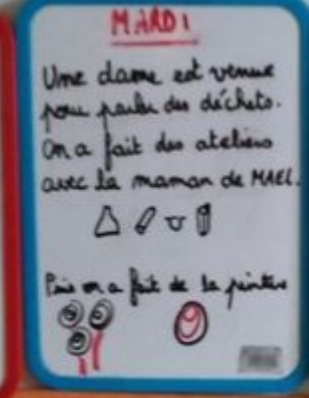 MARDI
Une dame est venue
pour parler des déchets.
On a fait des ateliers
avec la maman de MAEL.
Puis on a fait de la peinture